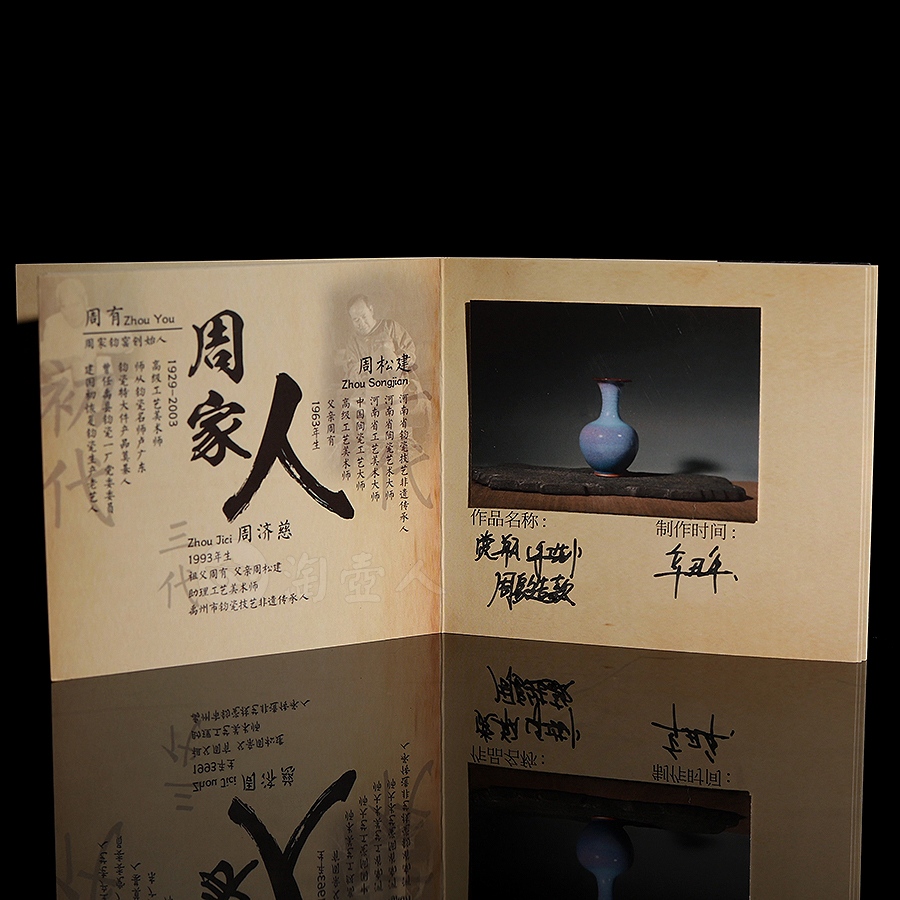 周有 Zhou You
周家钧窑创始人
1929-2003
高级工艺美术师
师从钧瓷名师卢广东
钧瓷特大件产品奠基人
曾任禹县钧瓷一厂党委委员
建国初恢复钧瓷生产老艺人
初代
周家人
周松建
Zhou Songjian
河南省钧瓷技艺非遗传承人
河南省陶瓷艺术大师
河南省工艺美术大师
中国陶瓷工艺大师
高级工艺美术师
父亲周有
1963年生
三代
Zhou Jici 周济慈
1993年生
祖父周有 父亲周松建
助理工艺美术师
禹州市钧瓷技艺非遗传承人
淘壶人
作品名称：
制作时间：
辛丑年